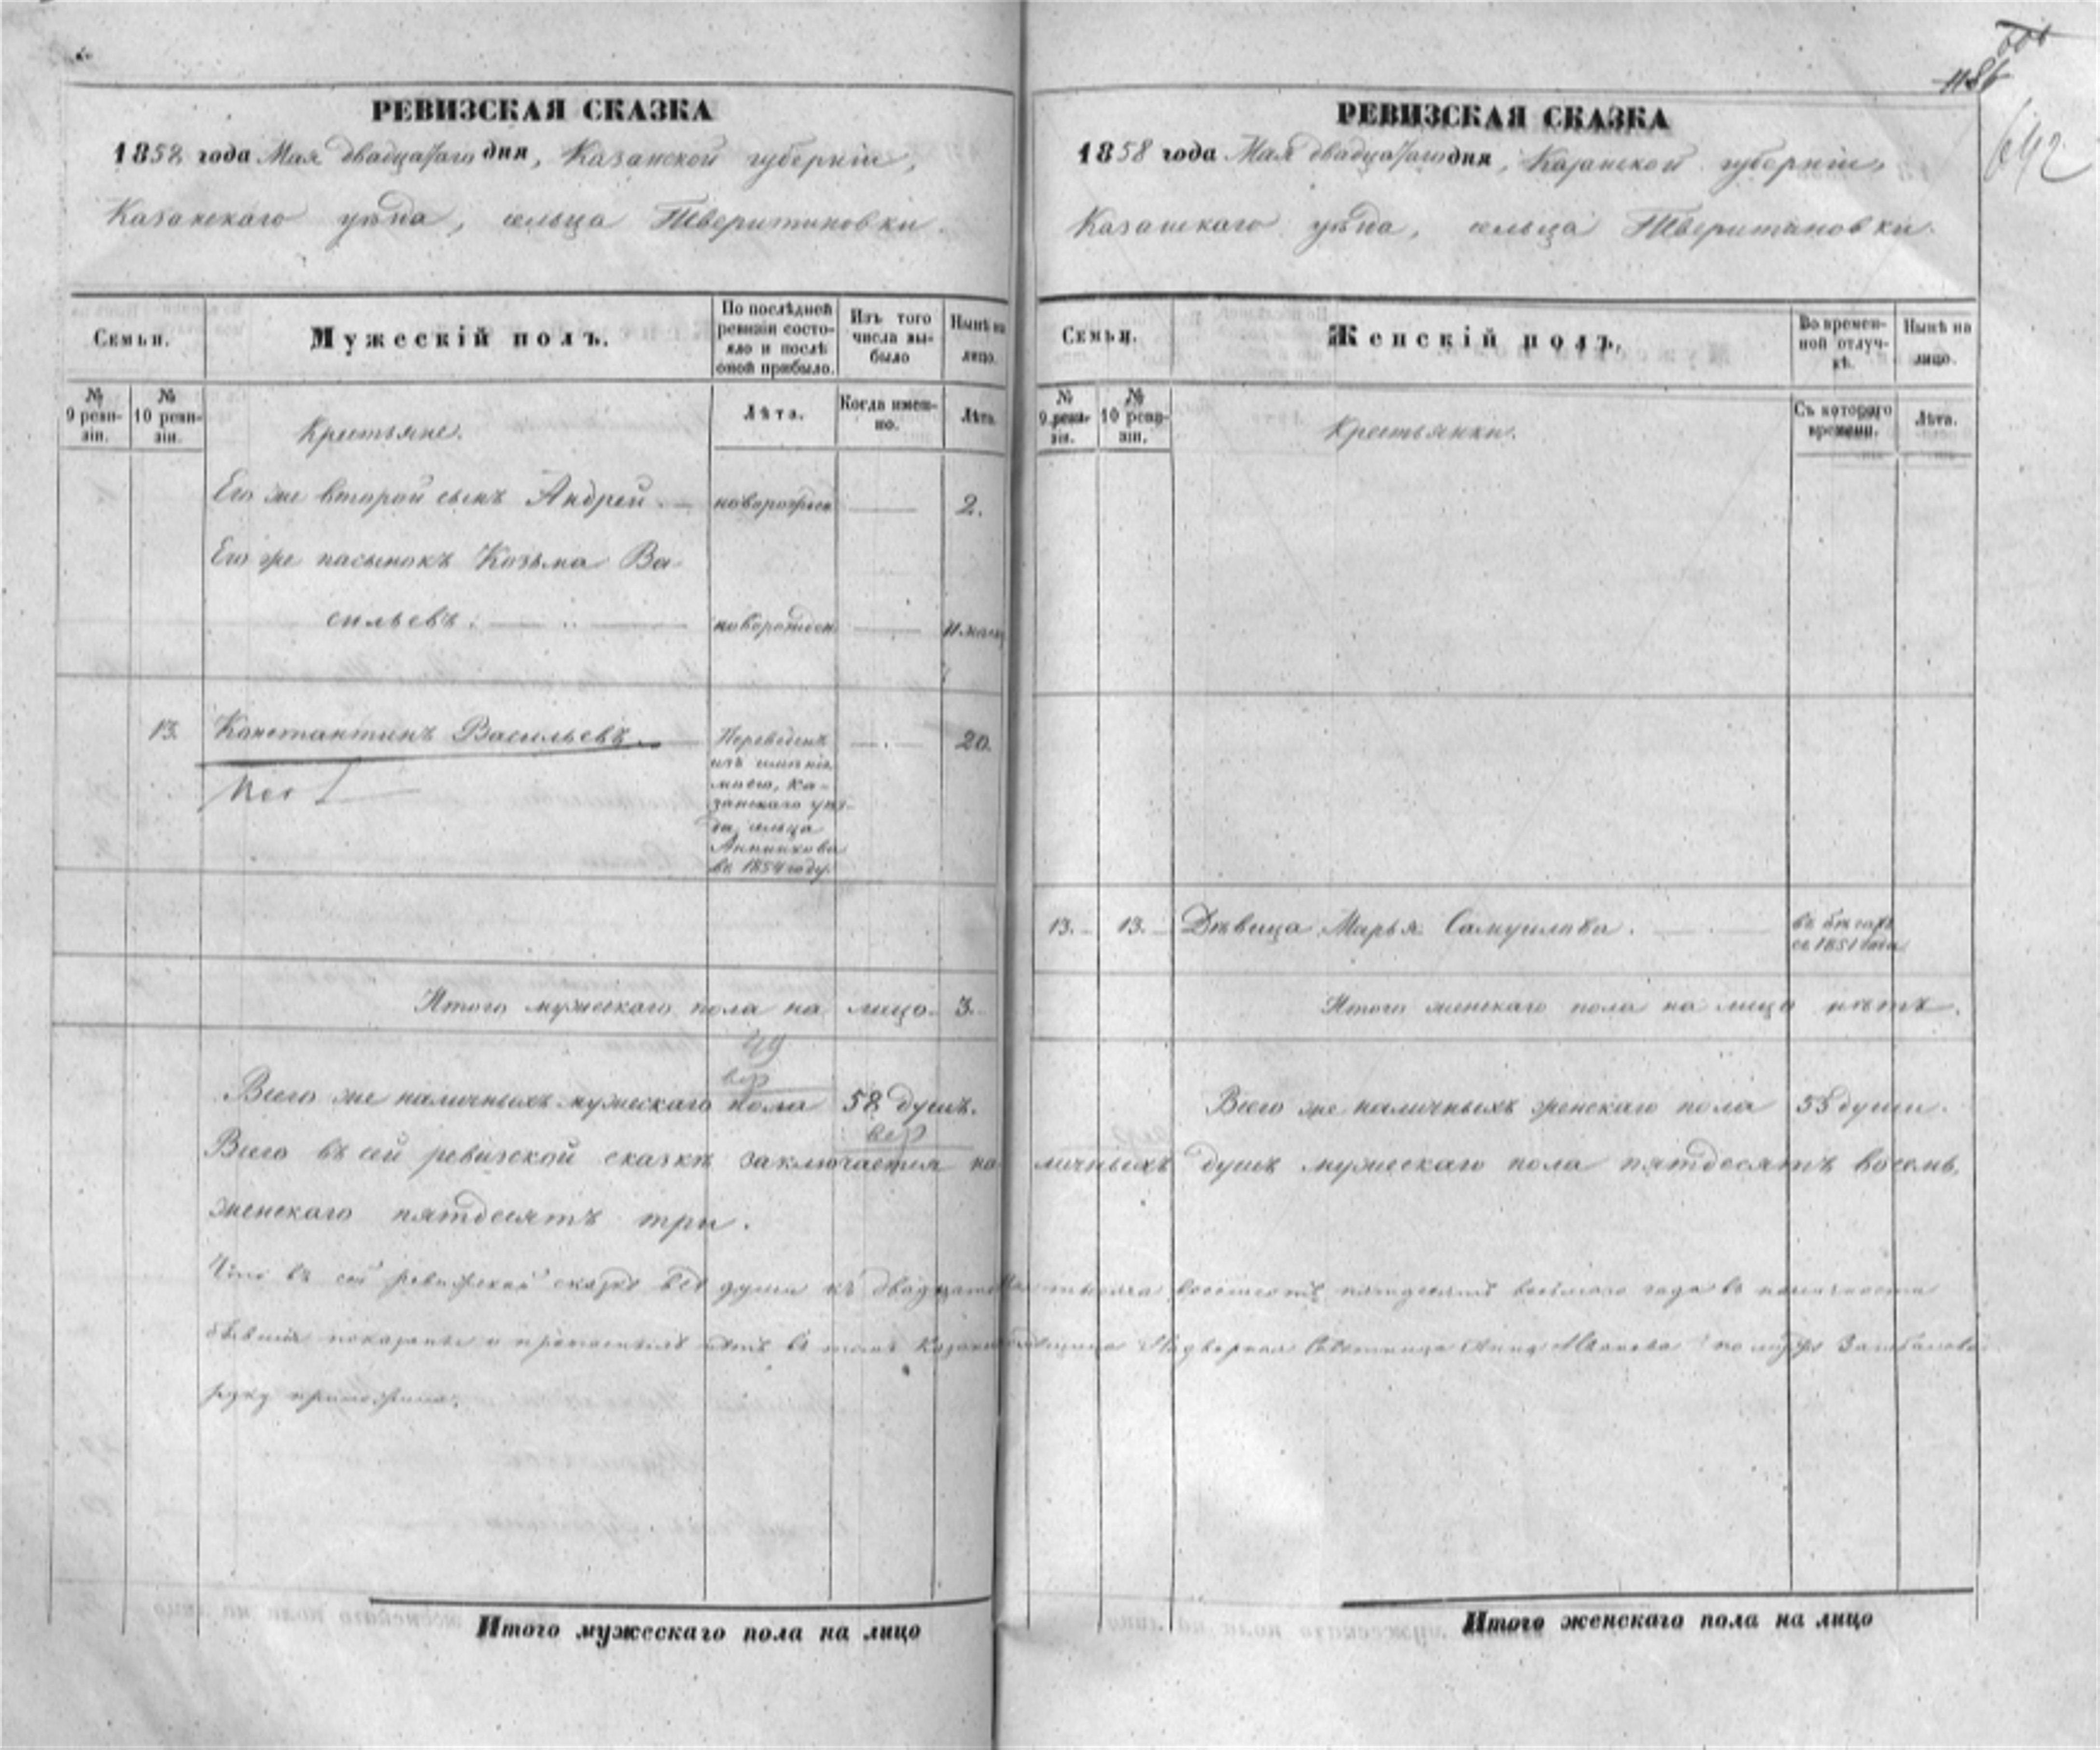 РЕВИЗСКАЯ СКАЗКА
1858 года Мая двадцатаго дня, Казанской губерніи,
Казанскаго уѣзда, сельца Тверитиновки.
Семьи.
Мужескій полъ.
По послѣдней ревизіи состояло и послѣ оной прибыло.
Изъ того числа выбыло
Нынѣ на лицо.
№ 9 ревизіи.
№ 10 ревизіи.
Лѣта.
Когда именно.
Лѣта.
Крестьяне.
Его же второй сынъ Андрей — новорожден — 2.
Его же пасынокъ Козьма Ва-
сильевъ. — новорожден —
13. Константинъ Васильевъ. — 20.
Переведенъ
изъ имѣнія
моего, Ка-
занскаго уѣз-
да, сельца
въ 1854 году.
Итого мужескаго пола на лицо. 3.
49
вер
Всего же наличныхъ мужескаго пола 58 душъ.
вер
Всего въ сей ревизской сказкѣ заключается на-
женскаго пятдесятъ три.
Что въ сей ревизской сказке все души къ двадцатому
руку приложила.
Итого мужескаго пола на лицо
600
1186
642
РЕВИЗСКАЯ СКАЗКА
1858 года Мая двадцатаго дня, Казанской губерніи,
Казанскаго уѣзда, сельца Тверитиновки.
Семьи.
Женскій полъ.
Во временной отлучкѣ.
Нынѣ на лицо.
№ 9 ревизіи.
№ 10 ревизіи.
Съ котораго времени.
Лѣта.
Крестьянки.
13. — 13. — Дѣвица Марья Самуилова. —
въ бѣгахъ
съ 1851 года
Итого женскаго пола на лицо нѣтъ.
Всего же наличныхъ женскаго пола 53 души.
личныхъ душъ мужескаго пола пятдесятъ восемь,
тысяча восемьсотъ пятдесятъ восьмаго года въ наличности
Надворная Советница Анна Иванова
Итого женскаго пола на лицо